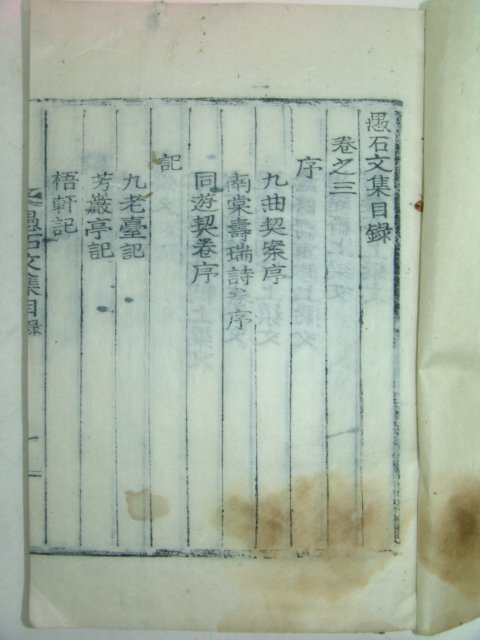 愚石文集目錄
卷之三
序
九曲契案序
南棠壽瑞詩卷序
同遊契卷序
記
九老臺記
芳巖亭記
梧軒記
愚石文集目錄
一